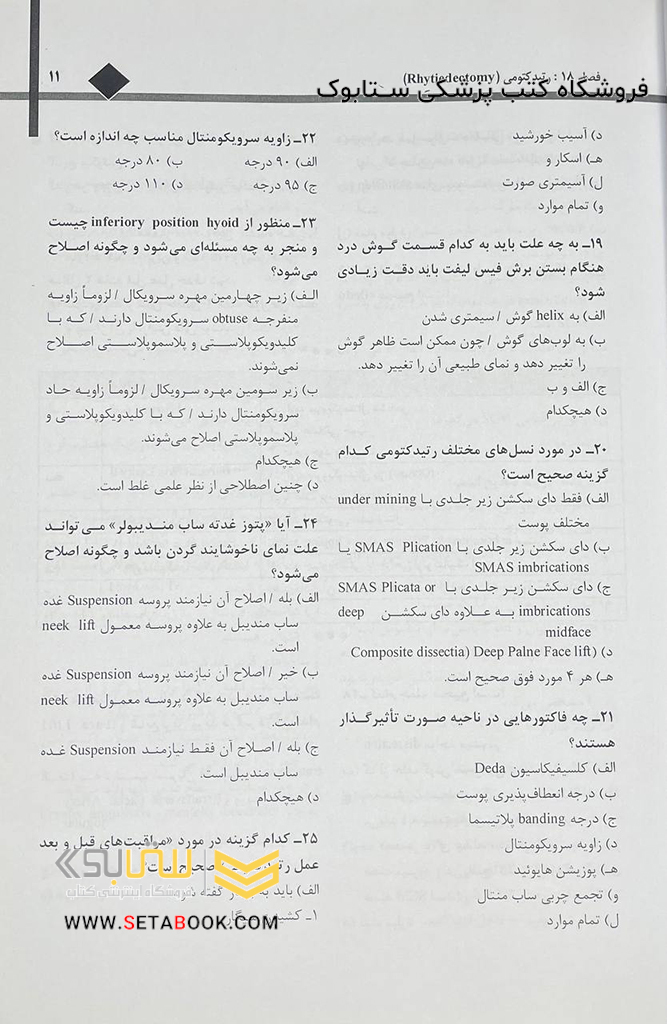 فصل ۱۸ : رتیدکتومی (Rhytiedectomy)
۱۱
فروشگاه کتب پزشکی ستابوک
د) آسیب خورشید
هـ) اسکار و
ل) آسیمتری صورت
و) تمام موارد
۱۹ـ به چه علت باید به کدام قسمت گوش درد
هنگام بستن برش فیس لیفت باید دقت زیادی
شود؟
الف) به helix گوش / سیمتری شدن
ب) به لوب‌های گوش / چون ممکن است ظاهر گوش
را تغییر دهد و نمای طبیعی آن را تغییر دهد.
ج) الف و ب
د) هیچکدام
۲۰ـ در مورد نسل‌های مختلف رتیدکتومی کدام
گزینه صحیح است؟
الف) فقط دای سکشن زیر جلدی با under mining
مختلف پوست
ب) دای سکشن زیر جلدی با SMAS Plication یا
SMAS imbrications
ج) دای سکشن زیر جلدی با SMAS Plicata or
imbrications به علاوه دای سکشن deep
midface
د) (Composite dissectia) Deep Palne Face lift
هـ) هر ۴ مورد فوق صحیح است.
۲۱ـ چه فاکتورهایی در ناحیه صورت تأثیرگذار
هستند؟
الف) کلسیفیکاسیون Deda
ب) درجه انعطاف‌پذیری پوست
ج) درجه banding پلاتیسما
د) زاویه سرویکومنتال
هـ) پوزیشن هایوئید
و) تجمع چربی ساب منتال
ل) تمام موارد
۲۲ـ زاویه سرویکومنتال مناسب چه اندازه است؟
الف) ۹۰ درجه ب) ۸۰ درجه
ج) ۹۵ درجه د) ۱۱۰ درجه
۲۳ـ منظور از inferiory position hyoid چیست
و منجر به چه مسئله‌ای می‌شود و چگونه اصلاح
می‌شود؟
الف) زیر چهارمین مهره سرویکال / لزوماً زاویه
منفرجه obtuse سرویکومنتال دارند / که با
کلیدویکوپلاستی و پلاسموپلاستی اصلاح
نمی‌شوند.
ب) زیر سومین مهره سرویکال / لزوماً زاویه حاد
سرویکومنتال دارند / که با کلیدویکوپلاستی و
پلاسموپلاستی اصلاح می‌شوند.
ج) هیچکدام
د) چنین اصطلاحی از نظر علمی غلط است.
۲۴ـ آیا «پتوز غدته ساب مندیبولر» می تواند
علت نمای ناخوشایند گردن باشد و چگونه اصلاح
می‌شود؟
الف) بله / اصلاح آن نیازمند پروسه Suspension غده
ساب مندیبل به علاوه پروسه معمول neek lift
است.
ب) خیر / اصلاح آن نیازمند پروسه Suspension غده
ساب مندیبل به علاوه پروسه معمول neek lift
است.
ج) بله / اصلاح آن فقط نیازمند Suspension غده
ساب مندیبل است.
د) هیچکدام
۲۵ـ کدام گزینه در مورد «مراقبت‌های قبل و بعد
عمل صحیح است؟
الف) باید به گفته
۱ـ کشیدن
ستابوک
فروشگاه اینترنتی کتاب
WWW.SETABOOK.COM